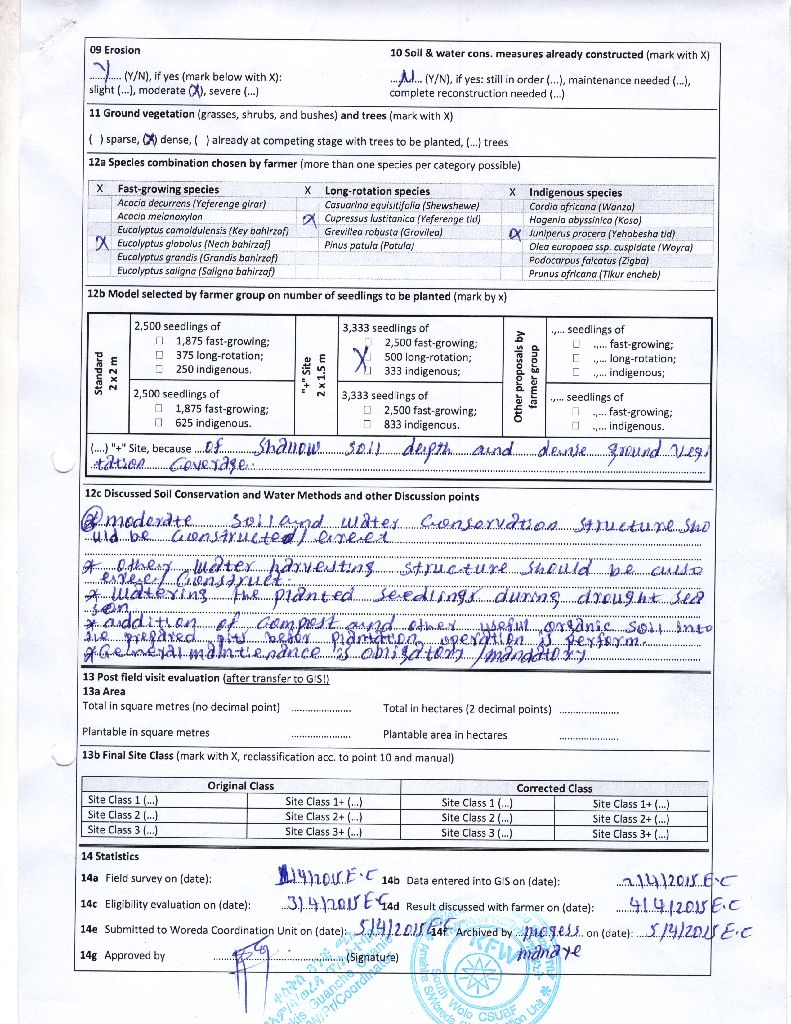 09 Erosion
10 Soil & water cons. measures already constructed (mark with X)
...Y... (Y/N), if yes (mark below with X):
...N... (Y/N), if yes: still in order (...), maintenance needed (...),
slight (...), moderate (X), severe (...)
complete reconstruction needed (...)
11 Ground vegetation (grasses, shrubs, and bushes) and trees (mark with X)
( ) sparse, (X) dense, ( ) already at competing stage with trees to be planted, (...) trees
12a Species combination chosen by farmer (more than one species per category possible)
X Fast-growing species X Long-rotation species X Indigenous species
Acacia decurrens (Yeferenge girar) Casuarina equisitifolia (Shewshewe) Cordia africana (Wanza)
Acacia melonoxylon X Cupressus lustitanica (Yeferenge tid) Hagenia abyssinica (Koso)
Eucalyptus camaldulensis (Key bahirzaf) Grevillea robusta (Grovilea) X Juniperus procera (Yehabesha tid)
X Eucalyptus globolus (Nech bahirzaf) Pinus patula (Patula) Olea europaea ssp. cuspidate (Woyra)
Eucalyptus grandis (Grandis bahirzaf) Podocarpus falcatus (Zigba)
Eucalyptus saligna (Saligna bahirzaf) Prunus africana (Tikur encheb)
12b Model selected by farmer group on number of seedlings to be planted (mark by x)
Standard
2 x 2 m
2,500 seedlings of
☐ 1,875 fast-growing;
☐ 375 long-rotation;
☐ 250 indigenous.
2,500 seedlings of
☐ 1,875 fast-growing;
☐ 625 indigenous.
"+" Site
2 x 1.5 m
3,333 seedlings of
☐ 2,500 fast-growing;
X 500 long-rotation;
☐ 333 indigenous;
3,333 seedlings of
☐ 2,500 fast-growing;
☐ 833 indigenous.
Other proposals by
farmer group
.,... seedlings of
☐ .,... fast-growing;
☐ .,... long-rotation;
☐ .,... indigenous;
.,... seedlings of
☐ .,... fast-growing;
☐ .,... indigenous.
(...) "+" Site, because of shallow soil depth and dense ground vege
tation coverage.
12c Discussed Soil Conservation and Water Methods and other Discussion points
* moderate soil and water conservation structure sho
uld be constructed/ erect
* other water harvesting structure should be
erect/ construct.
* watering the planted seedlings during drought sea
son
* addition of compost and other useful organic soil into
the prepared pits befor plantation operation is perform.
* General maintienance is obligatory /mandatory
13 Post field visit evaluation (after transfer to GIS!)
13a Area
Total in square metres (no decimal point) ............ Total in hectares (2 decimal points) ............
Plantable in square metres ............ Plantable area in hectares ............
13b Final Site Class (mark with X, reclassification acc. to point 10 and manual)
Original Class Corrected Class
Site Class 1 (...) Site Class 1+ (...) Site Class 1 (...) Site Class 1+ (...)
Site Class 2 (...) Site Class 2+ (...) Site Class 2 (...) Site Class 2+ (...)
Site Class 3 (...) Site Class 3+ (...) Site Class 3 (...) Site Class 3+ (...)
14 Statistics
14a Field survey on (date): 1/4/2015 E.C 14b Data entered into GIS on (date): 2/4/2015 E.C
14c Eligibility evaluation on (date): 3/4/2015 E.C 14d Result discussed with farmer on (date): 4/4/2015 E.C
14e Submitted to Woreda Coordination Unit on (date): 5/4/2015 E.C 14f Archived by mogess on (date): 5/4/2015 E.C
manaye
14g Approved by ............ (Signature)
KFW
South Wolo CSUBF